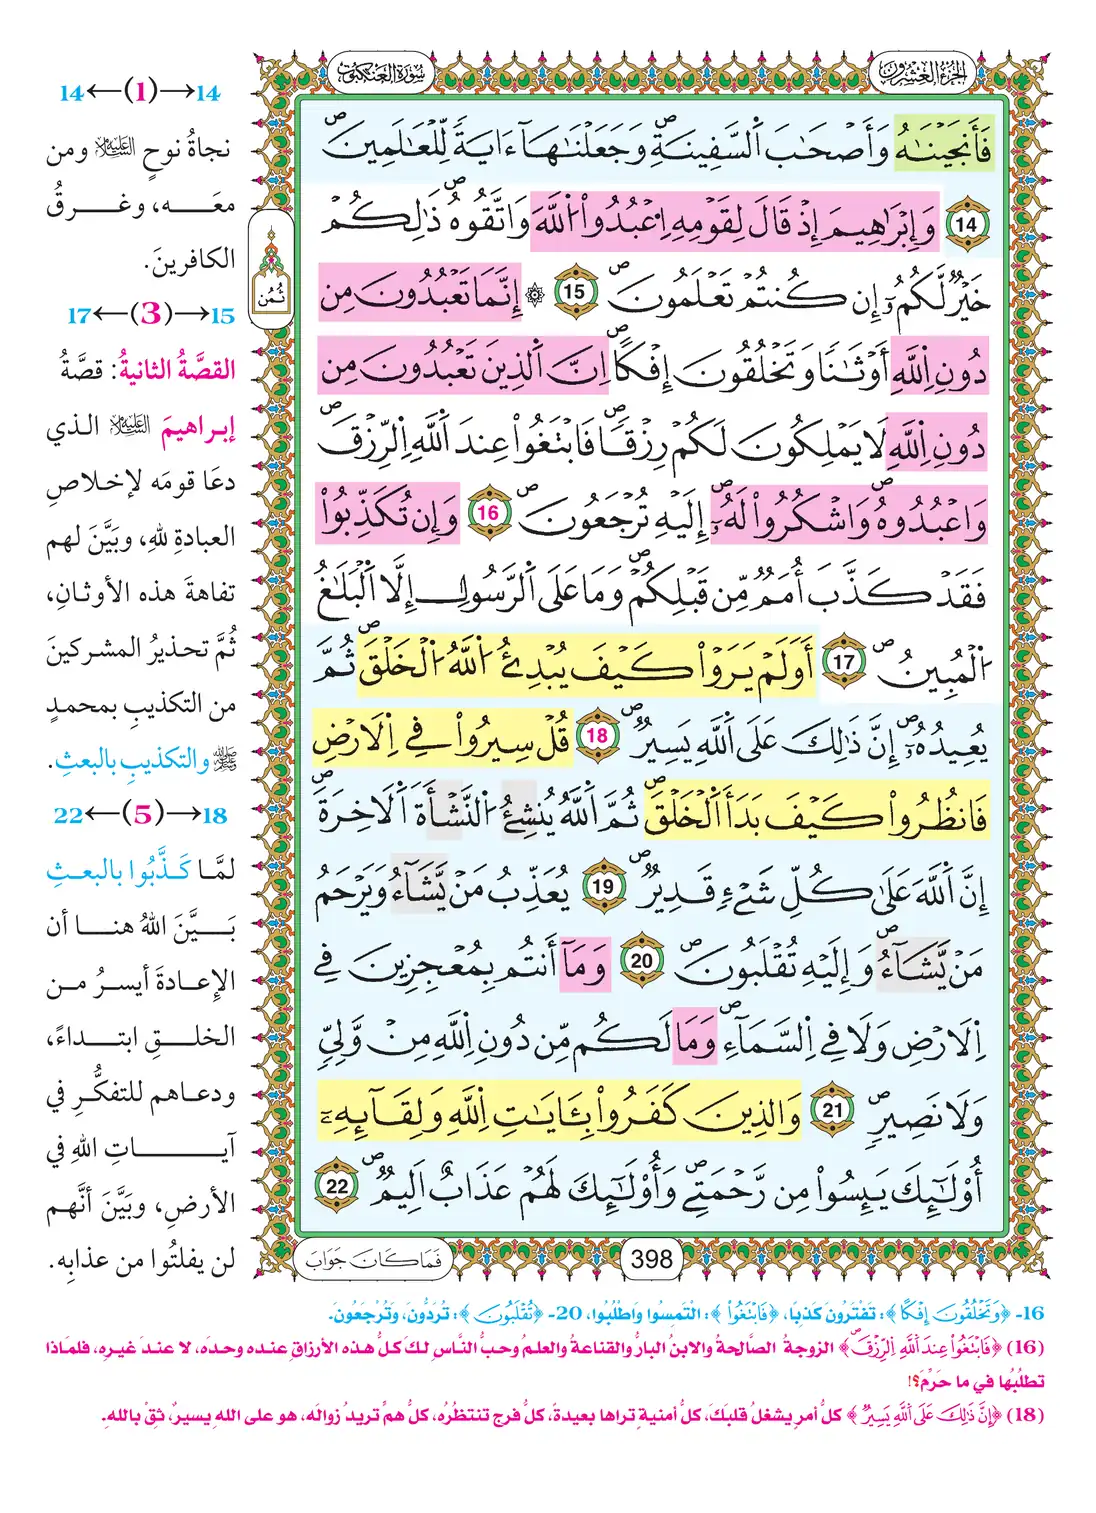 الجزء العشرون
سورة العنكبوت
فَأَنجَيْنَٰهُ وَأَصْحَٰبَ اَ۬لسَّفِينَةِۖ وَجَعَلْنَٰهَآ ءَايَةٗ لِّلْعَٰلَمِينَۖ
14 وَإِبْرَٰهِيمَ إِذْ قَالَ لِقَوْمِهِ اِ۟عْبُدُواْ اُ۬للَّهَ وَاتَّقُوهُۖ ذَٰلِكُمْ
خَيْرٞ لَّكُمُۥٓ إِن كُنتُمْ تَعْلَمُونَۖ 15 ۞ إِنَّمَا تَعْبُدُونَ مِن
دُونِ اِ۬للَّهِ أَوْثَٰنٗا وَتَخْلُقُونَ إِفْكاًۖ اِنَّ اَ۬لذِينَ تَعْبُدُونَ مِن
دُونِ اِ۬للَّهِ لَا يَمْلِكُونَ لَكُمْ رِزْقٗاۖ فَابْتَغُواْ عِندَ اَ۬للَّهِ اِ۬لرِّزْقَۖ
وَاعْبُدُوهُۖ وَاشْكُرُواْ لَهُۥٓۖ إِلَيْهِ تُرْجَعُونَۖ 16 وَإِن تُكَذِّبُواْ
فَقَدْ كَذَّبَ أُمَمٞ مِّن قَبْلِكُمْۖ وَمَا عَلَى اَ۬لرَّسُولِ إِلَّا اَ۬لْبَلَٰغُ
اُ۬لْمُبِينُۖ 17 أَوَلَمْ يَرَوْاْ كَيْفَ يُبْدِئُ اُ۬للَّهُ اُ۬لْخَلْقَۖ ثُمَّ
يُعِيدُهُۥٓۖ إِنَّ ذَٰلِكَ عَلَى اَ۬للَّهِ يَسِيرٞۖ 18 قُلْ سِيرُواْ فِے اِ۬لَارْضِ
فَانظُرُواْ كَيْفَ بَدَأَ اَ۬لْخَلْقَۖ ثُمَّ اَ۬للَّهُ يُنشِئُ اُ۬لنَّشْأَةَ اَ۬لَاخِرَةَۖ
إِنَّ اَ۬للَّهَ عَلَىٰ كُلِّ شَےْءٖ قَدِيرٞۖ 19 يُعَذِّبُ مَنْ يَّشَآءُ وَيَرْحَمُ
مَنْ يَّشَآءُۖ وَإِلَيْهِ تُقْلَبُونَۖ 20 وَمَآ أَنتُم بِمُعْجِزِينَ فِے
اِ۬لَارْضِ وَلَا فِے اِ۬لسَّمَآءِۖ وَمَا لَكُم مِّن دُونِ اِ۬للَّهِ مِنْ وَّلِيّٖ
وَلَا نَصِيرٖۖ 21 وَالذِينَ كَفَرُواْ بِـَٔايَٰتِ اِ۬للَّهِ وَلِقَآئِهِۦٓ
أُوْلَٰٓئِكَ يَئِسُواْ مِن رَّحْمَتِےۖ وَأُوْلَٰٓئِكَ لَهُمْ عَذَابٌ اَلِيمٞۖ 22
ثُمُن
398
فَمَا كَانَ جَوَابَ
14←(1)→14
نجاةُ نوحٍ عليه السلام ومن
معَه، وغرقُ
الكافرينَ.
17←(3)→15
القصَّةُ الثانيةُ: قصَّةُ
إبراهيمَ عليه السلام الذي
دعَا قومَه لإخلاصِ
العبادةِ للهِ، وبَيَّنَ لهم
تفاهةَ هذه الأوثانِ،
ثُمَّ تحذيرُ المشركينَ
من التكذيبِ بمحمدٍ
ﷺ والتكذيبِ بالبعثِ.
22←(5)→18
لمَّا كَذَّبُوا بالبعثِ
بَيَّنَ اللهُ هنا أن
الإعادةَ أيسرُ من
الخلقِ ابتداءً،
ودعاهم للتفكُّرِ في
آياتِ اللهِ في
الأرضِ، وبَيَّنَ أنَّهم
لن يفلتُوا من عذابِه.
16- ﴿وَتَخْلُقُونَ إِفْكًا﴾: تَفْتَرُونَ كَذِبًا، ﴿فَابْتَغُواْ﴾: الْتَمِسُوا وَاطْلُبُوا، 20- ﴿تُقْلَبُونَ﴾: تُرَدُّونَ، وَتُرْجَعُونَ.
(16) ﴿فَابْتَغُواْ عِندَ اَ۬للَّهِ اِ۬لرِّزْقَۖ﴾ الزوجةُ الصَّالحةُ والابنُ البارُّ والقناعةُ والعلمُ وحبُّ النَّاسِ لكَ كلُّ هذه الأرزاقِ عنده وحدَه، لا عندَ غيرِه، فلمَاذا
تطلُبُها في ما حَرَّمَ؟!
(18) ﴿إِنَّ ذَٰلِكَ عَلَى اَ۬للَّهِ يَسِيرٞۖ﴾ كلُّ أمرٍ يشغلُ قلبَكَ، كلُّ أمنيةٍ تراها بعيدةً، كلُّ فرج تنتظرُه، كلُّ همٍّ تريدُ زوالَه، هو على اللهِ يسيرٌ، ثقْ باللهِ.